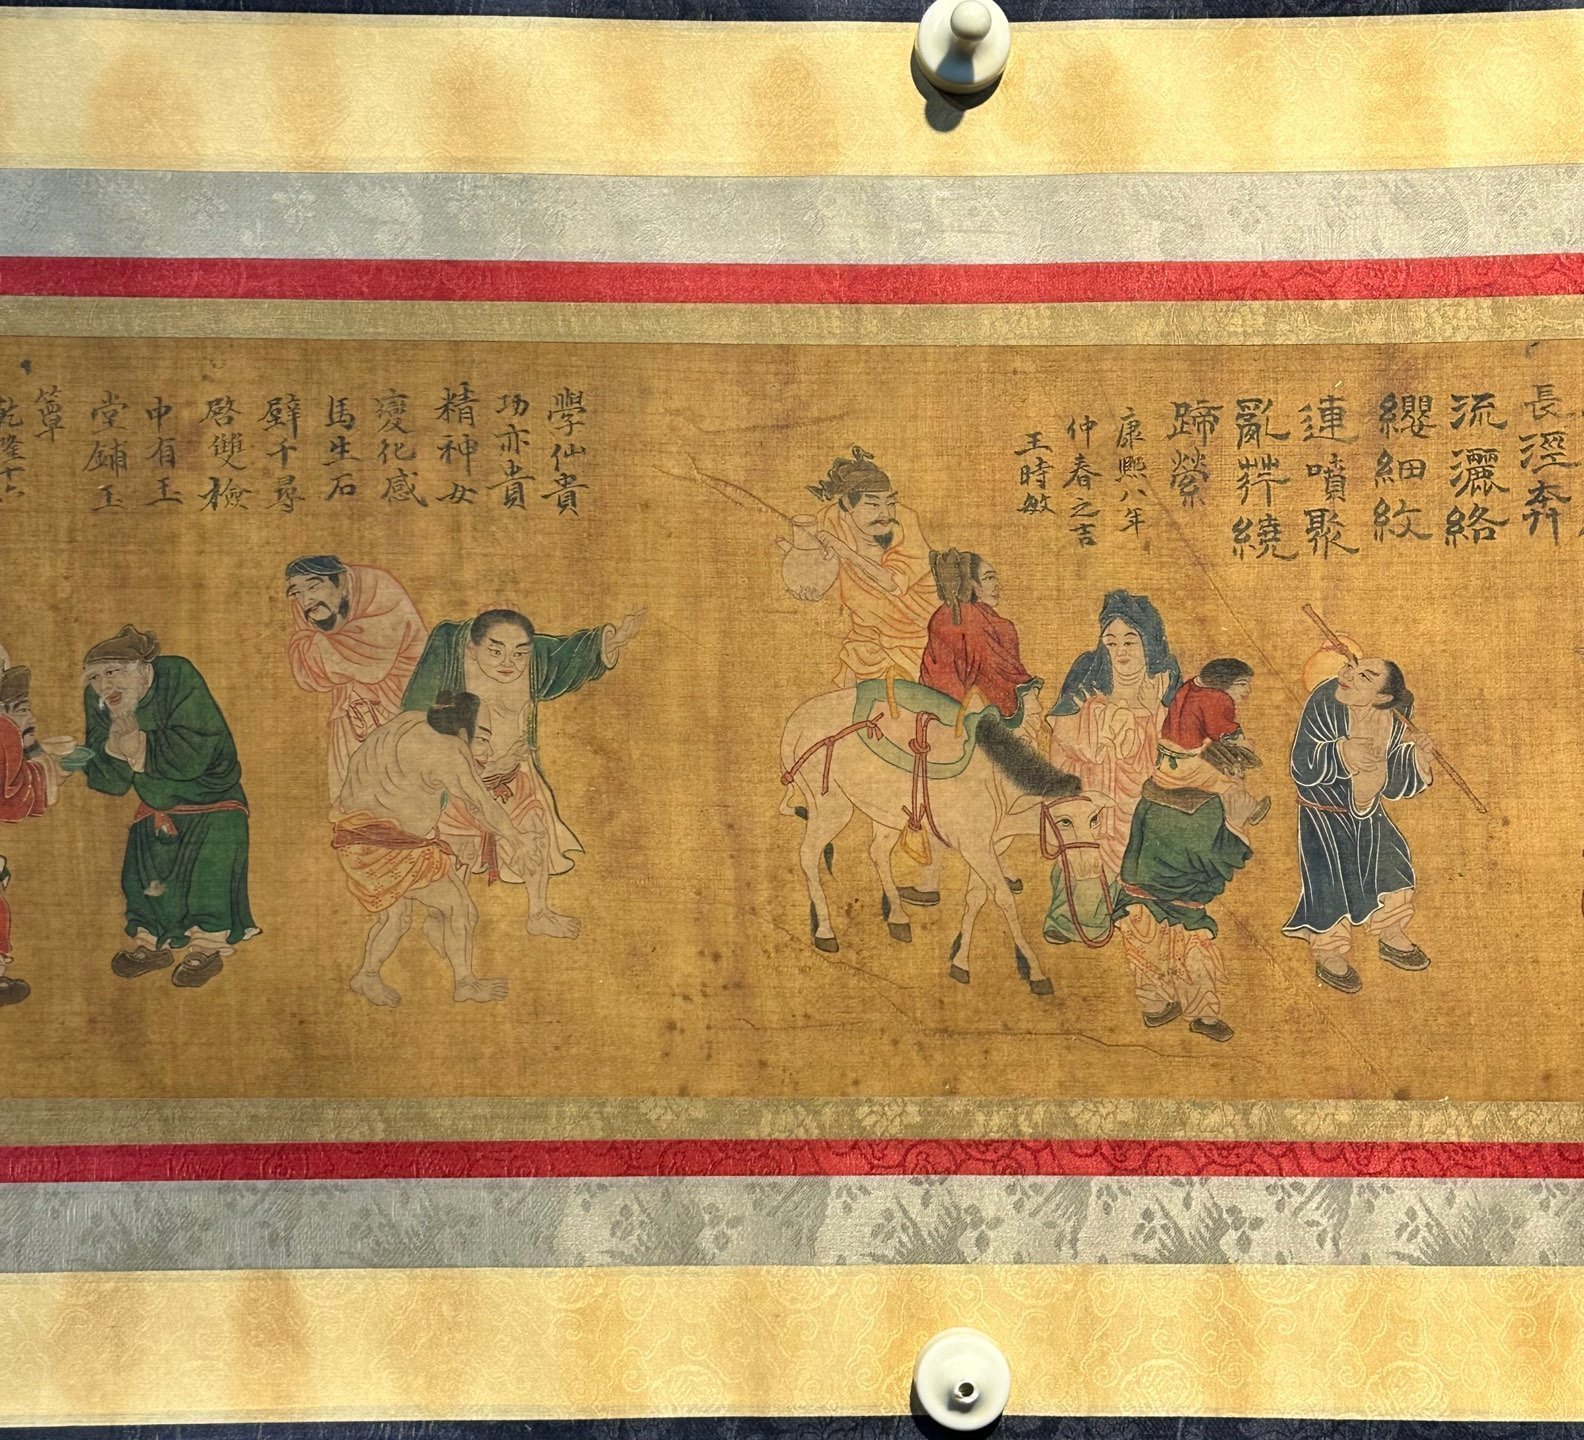 長涇奔
流灑絡
纓細紋
連噴聚
亂莽繞
蹄縈
康熙八年
仲春之吉
王時敏
學仙貴
功亦貴
精神女
變化感
馬生石
壁千尋
啓雙檢
中有玉
堂鋪玉
簟
乾隆十六